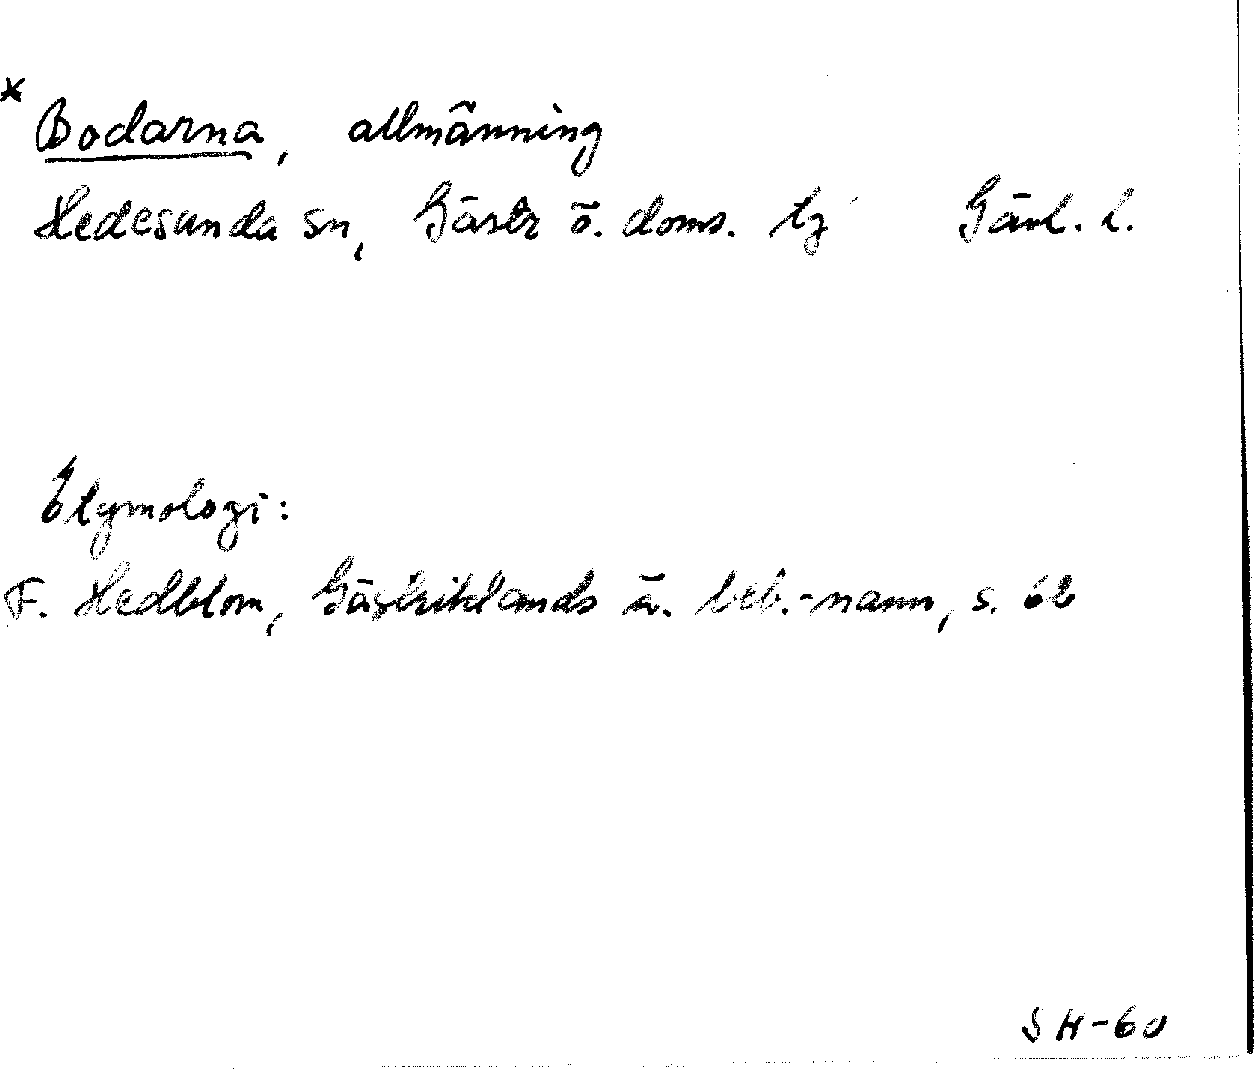 * Bodarna, allmänning
Hedesunda sn, Gästr ö. doms. tg Gävl. l.
Etymologi:
F. Hedblom, Gästriklands ä. beb.-namn, s. 62
SH-60